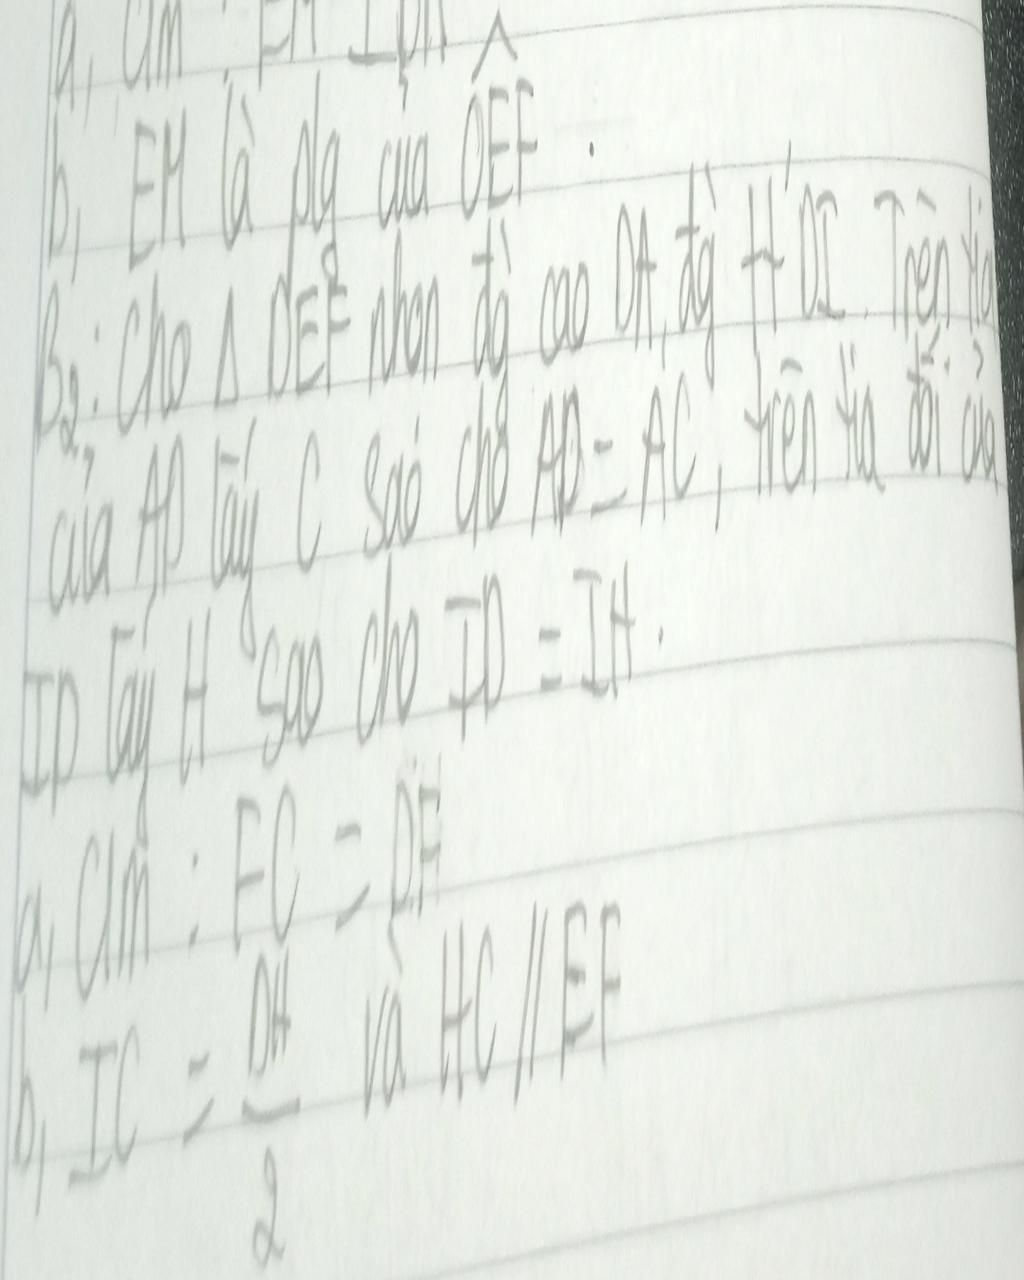 a, Cm : EM ⊥ DA
b, EM là pg của DEF^ .
B2: Cho Δ DEF nhọn đg cao DA, đg tt' DI. Trên tia
của AD lấy C sao cho AD = AC, trên tia đối của
ID lấy H sao cho ID = IH.
a, Cm : EC = DE
b, IC = DH/2 và HC // EF